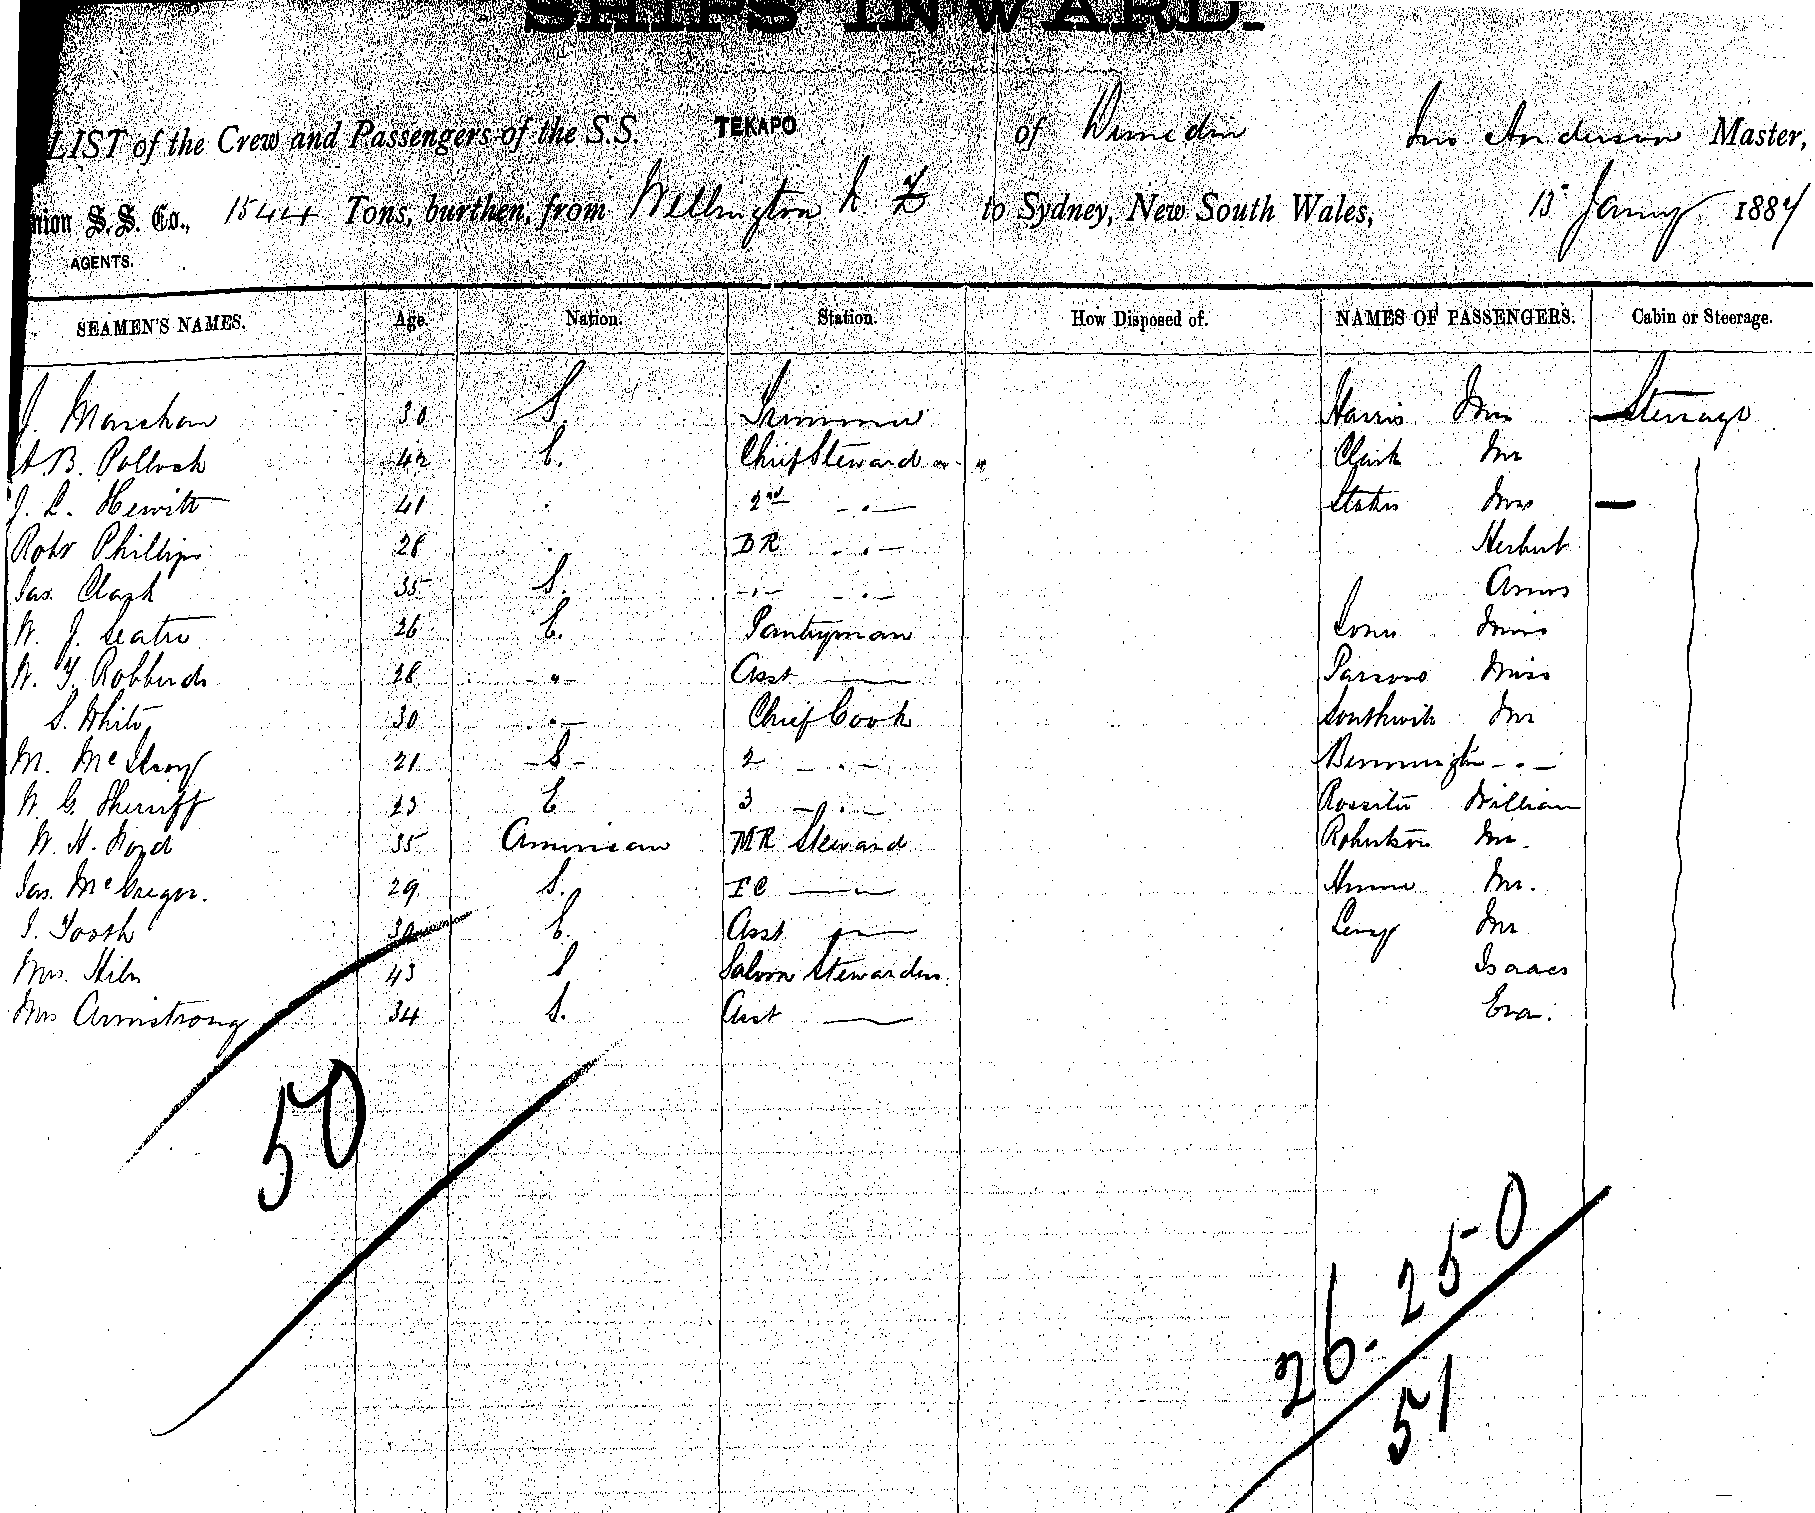 SHIPS INWARD.
LIST of the Crew and Passengers of the S.S. TEKAPO of Dunedin Jno Anderson Master,
Union S.S. Co., 1544 Tons, burthen, from Wellington N. Z to Sydney, New South Wales, 13 Jany 1887
AGENTS.
SEAMEN'S NAMES. Age. Nation. Station. How Disposed of. NAMES OF PASSENGERS. Cabin or Steerage.
J. 30 S. Trimmer Harris Steerage
A. B. Pollock 42 E. Chief Steward Clark Mr
J. L. Hewitt 41 2nd Mrs
Robt Phillips 28 BR Herbert
Jas. Clark 35 S.
W. J. 26 E. Pantryman Miss
W. Y. Robberds 28 Asst Parsons Miss
S. White 30 Chief Cook Mr
M. McIlroy 21 S 2 Bennington
W. G. Sherriff 23 E 3 Rossiter William
W. H. 35 American MR Steward Robertson Mr.
Jas. McGregor. 29 S. FC Hume Mr.
J. Tooth 30 E. Asst Levy Mr
Mrs. 43 S Saloon Stewardess Isaacs
Mrs Armstrong 34 S. Asst Eva.
50
26. 250
51